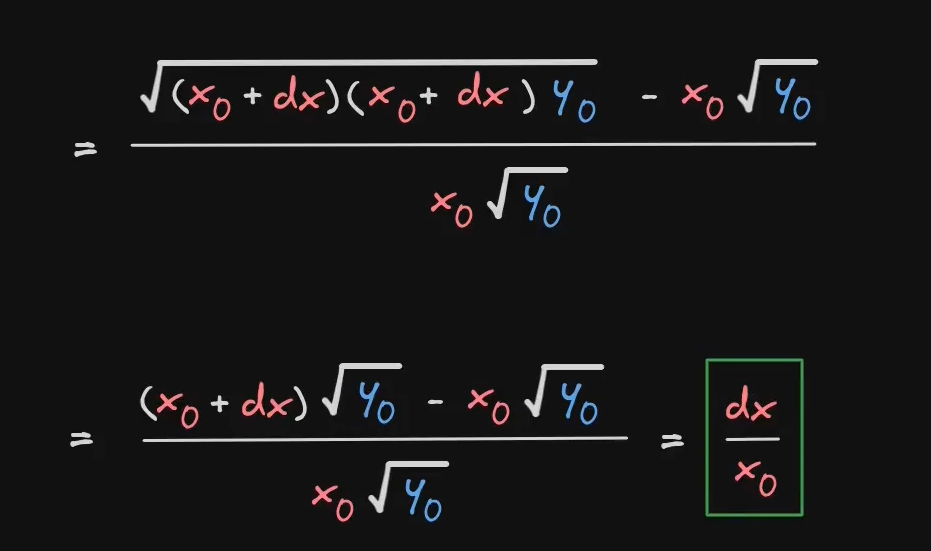 = √((x₀ + dx)(x₀ + dx) y₀) - x₀ √y₀
x₀ √y₀
= (x₀ + dx) √y₀ - x₀ √y₀ = dx
x₀ √y₀ x₀